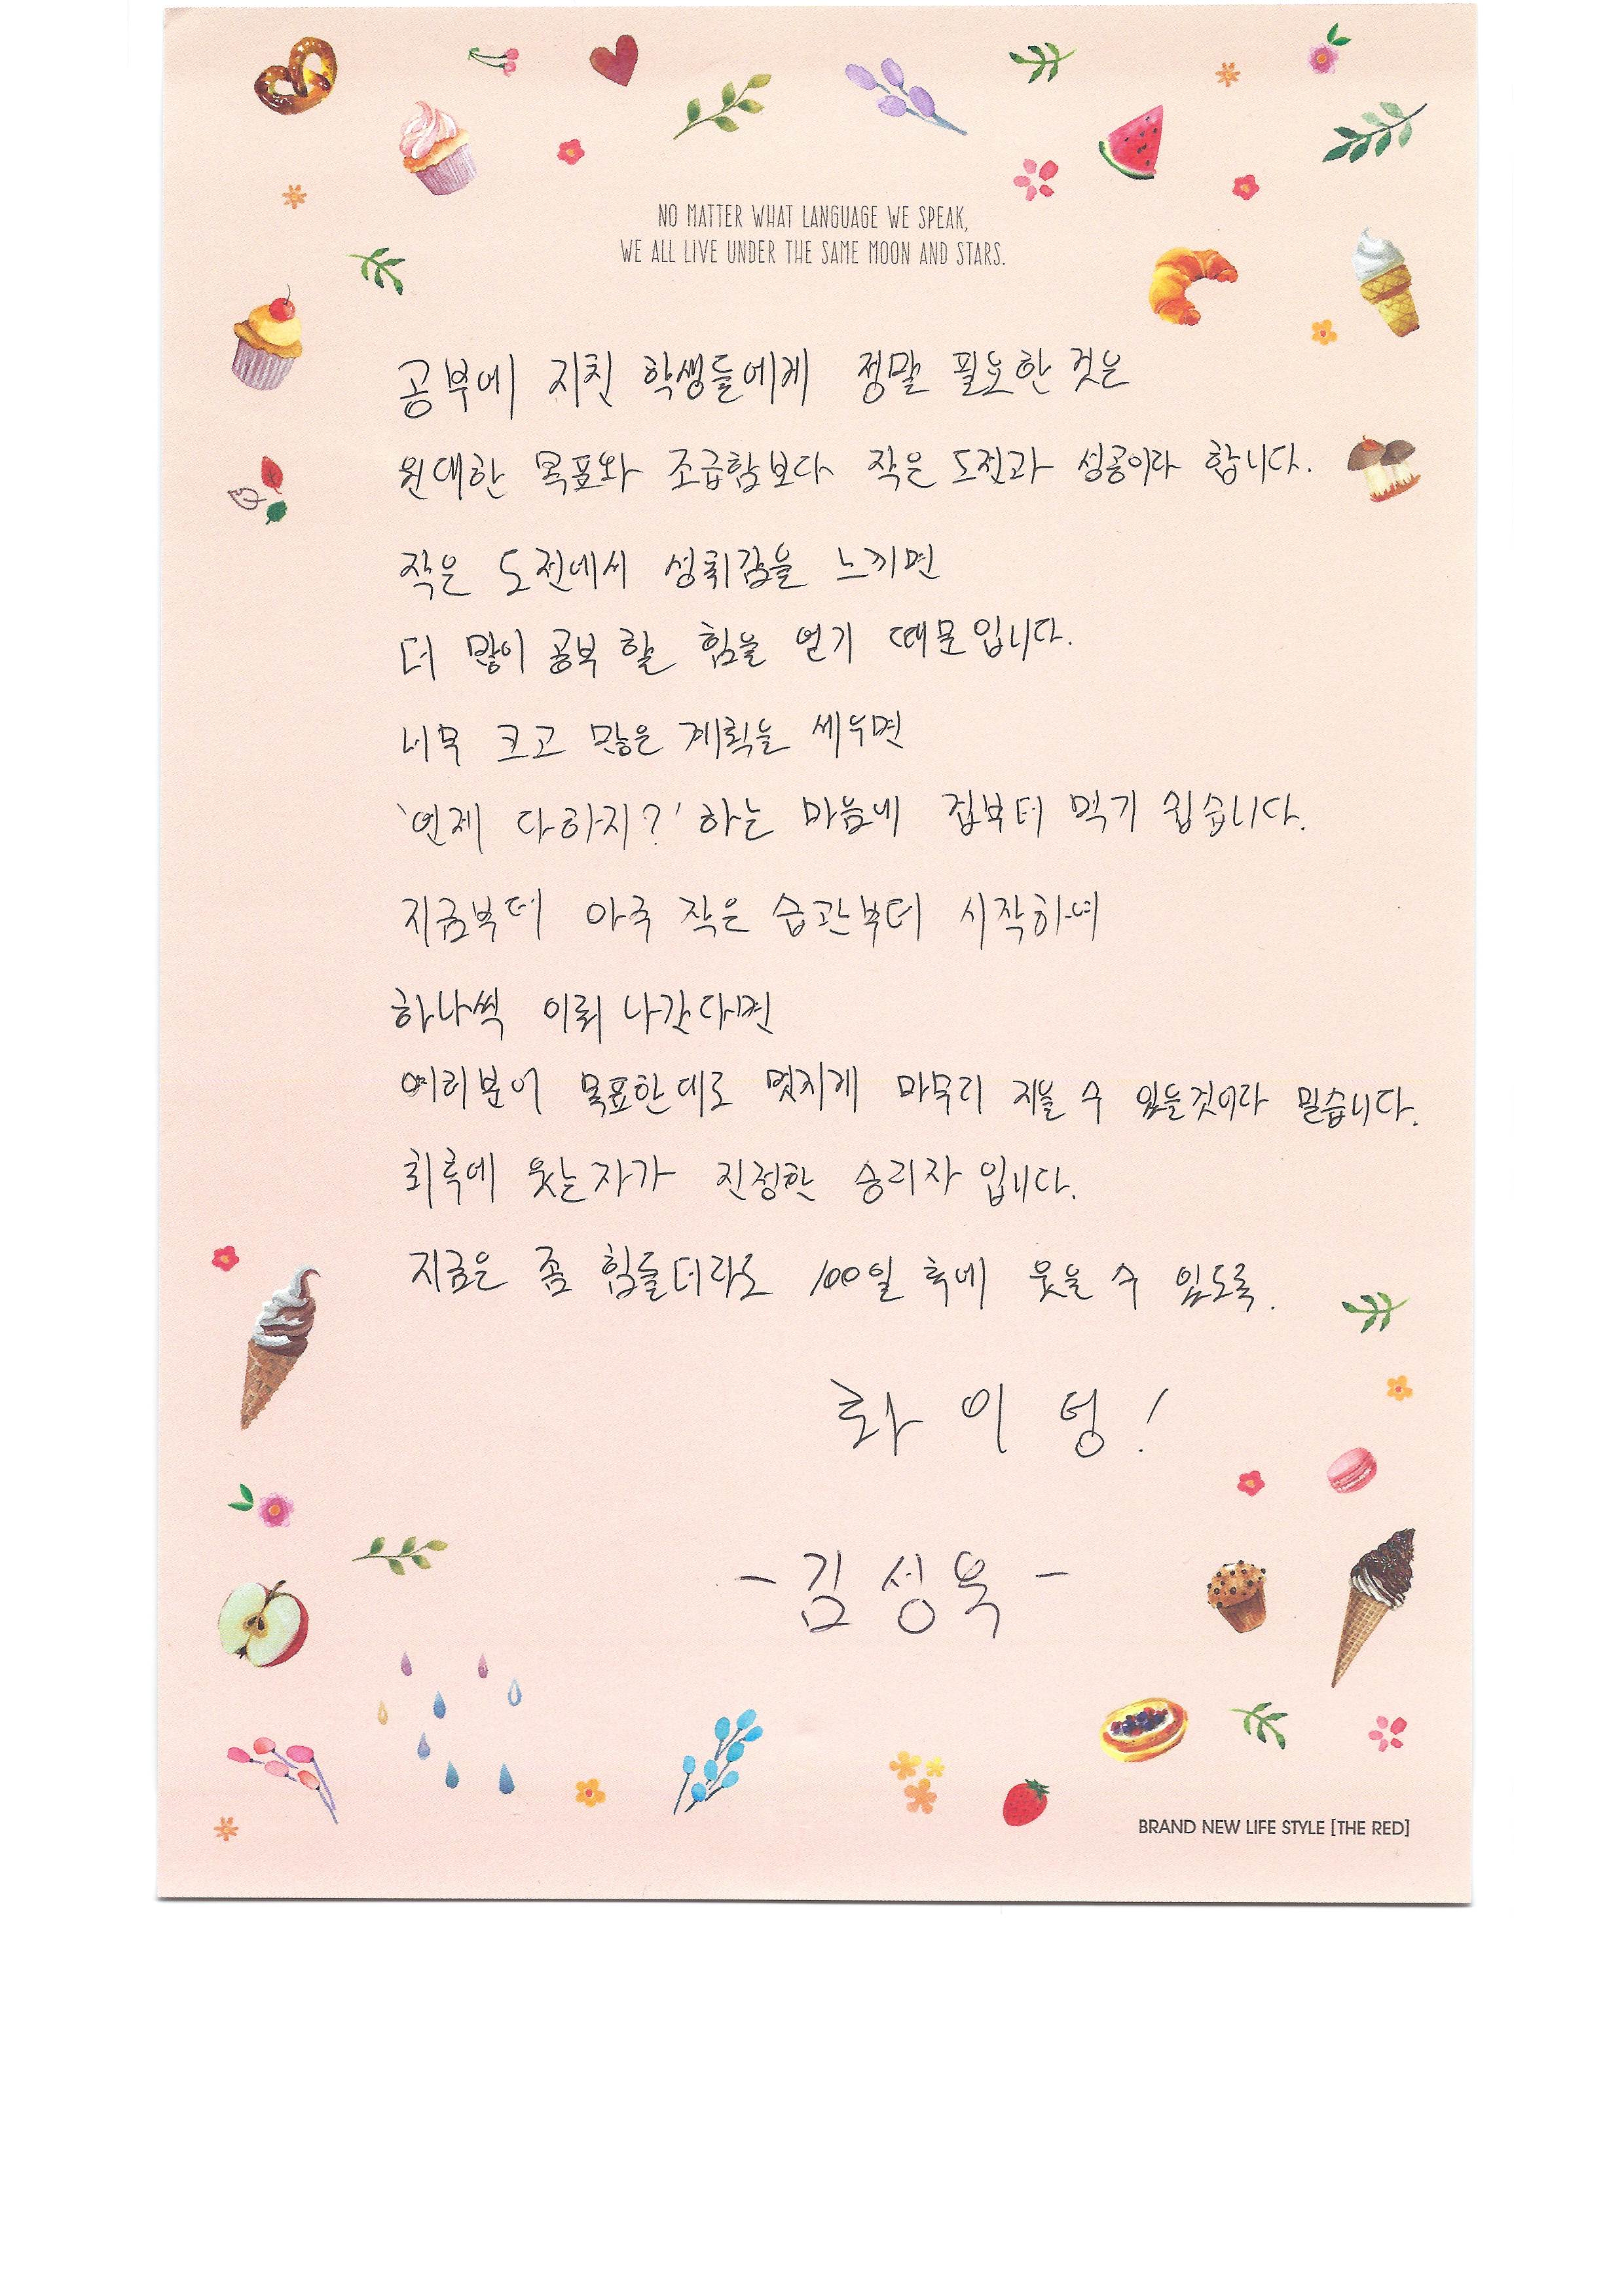 NO MATTER WHAT LANGUAGE WE SPEAK,
WE ALL LIVE UNDER THE SAME MOON AND STARS.
공부에 지친 학생들에게 정말 필요한 것은
원대한 목표와 조급함보다 작은 도전과 성공이라 합니다.
작은 도전에서 성취감을 느끼면
더 많이 공부 할 힘을 얻기 때문입니다.
너무 크고 많은 계획을 세우면
'언제 다하지?' 하는 마음에 겁부터 먹기 쉽습니다.
지금부터 아주 작은 습관부터 시작하여
하나씩 이뤄 나간다면
여러분이 목표한대로 멋지게 마무리 지을 수 있을것이라 믿습니다.
최후에 웃는자가 진정한 승리자 입니다.
지금은 좀 힘들더라도 100일 후에 웃을 수 있도록.
화 이 팅 !
- 김 성 욱 -
BRAND NEW LIFE STYLE [THE RED]